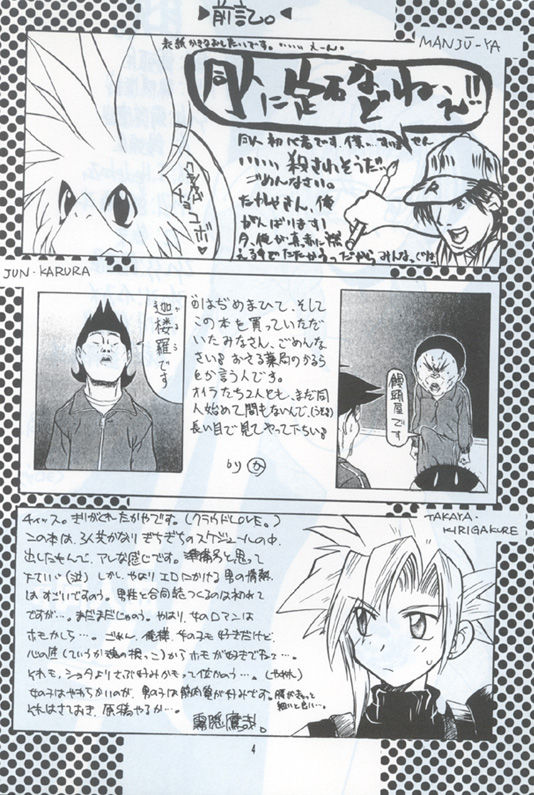 前記。
MANJŪ-YA
表紙かきなおしたいです。……えーん。
同人に定石などねぇ!!
同人初心者です、僕…すいません
……殺されそうだ
ごめんなさい。
たかやさん、俺
がんばります!
JUN・KARURA
迦楼羅です
はぢめまひて、そして
この本を買っていただ
いたみなさん、ごめんな
さい。おさる薬局のかるら
とか言う人です。
オイラたち2人とも、まだ同
人始めて間もないんで、
長い目で見てやって下ちい
by か
饅頭屋です
TAKAYA・KIRIGAKURE
チイッス。きりがくれたかやです。(クラウドLOVE。)
この本は、3人共かなりぎちぎちのスケジュールの中、
出したもんで、アレな感じです。準備号と思って
下ていい(泣) しかし、やはりエロにかける男の情熱
はすごいですのう。男性と合同誌つくるのは初めて
ですが…。まだまだじゃのう。やはり、女のロマンは
ホモかしら…。ごめん、俺様、女のコも好きだけど、
心の底(ていうか魂の根っこ)からホモが好きでねェ…。
女の子はやわらかいのが、男の子は筋肉質が好みです。
それはさておき、原稿やるか…。
霧隠鷹哉。
4